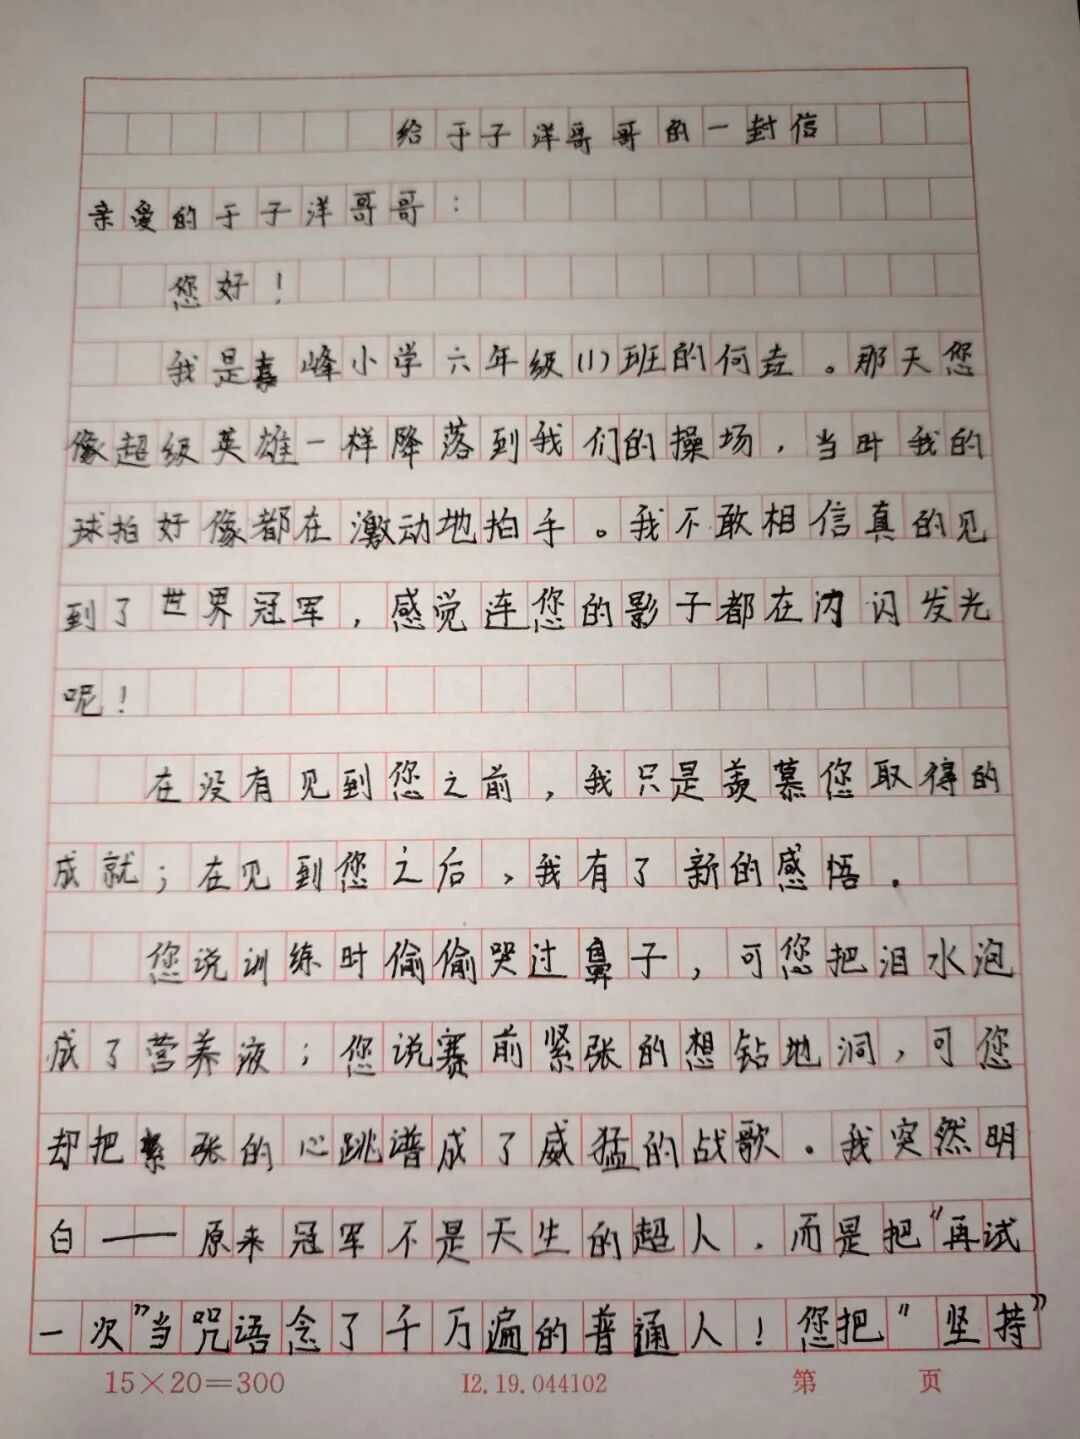 给于子洋哥哥的一封信
亲爱的于子洋哥哥：
您好！
我是嘉峰小学六年级(1)班的何垚。那天您
像超级英雄一样降落到我们的操场，当时我的
球拍好像都在激动地拍手。我不敢相信真的见
到了世界冠军，感觉连您的影子都在闪闪发光
呢！
在没有见到您之前，我只是羡慕您取得的
成就；在见到您之后，我有了新的感悟.
您说训练时偷偷哭过鼻子，可您把泪水泡
成了营养液；您说赛前紧张的想钻地洞，可您
却把紧张的心跳谱成了威猛的战歌。我突然明
白——原来冠军不是天生的超人.而是把“再试
一次”当咒语念了千万遍的普通人！您把“坚持”
15×20=300 I2.19.044102 第 页